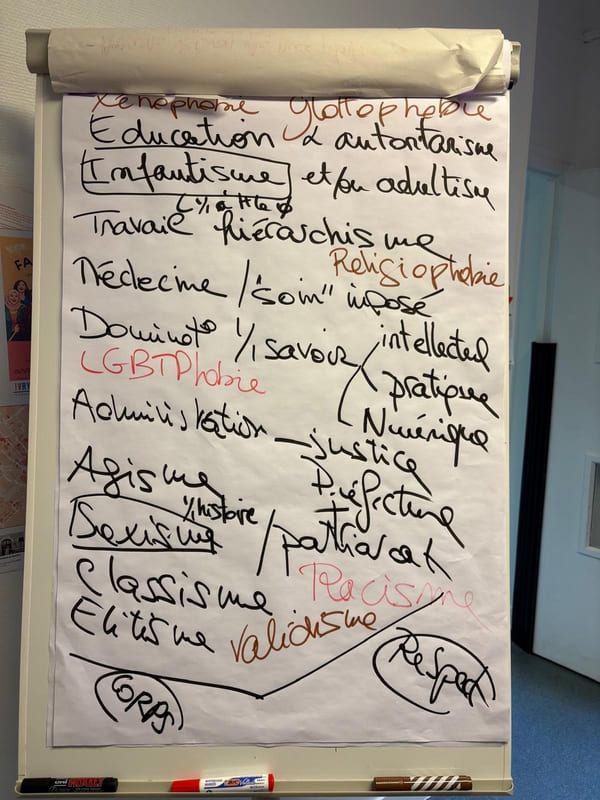 Xénophobie glottophobie
Education & autoritarisme
Infantisme et/ou adultisme
Travail hiérarchisme
Religiophobie
Médecine / "soin" imposé
Dominat° % savoir intellectuel
pratique
Numérique
LGBTPhobie
Administration justice
Préfecture
Agisme
% histoire
Sexisme / patriarcat
Classisme Racisme
Elitisme validisme
Corps Respect